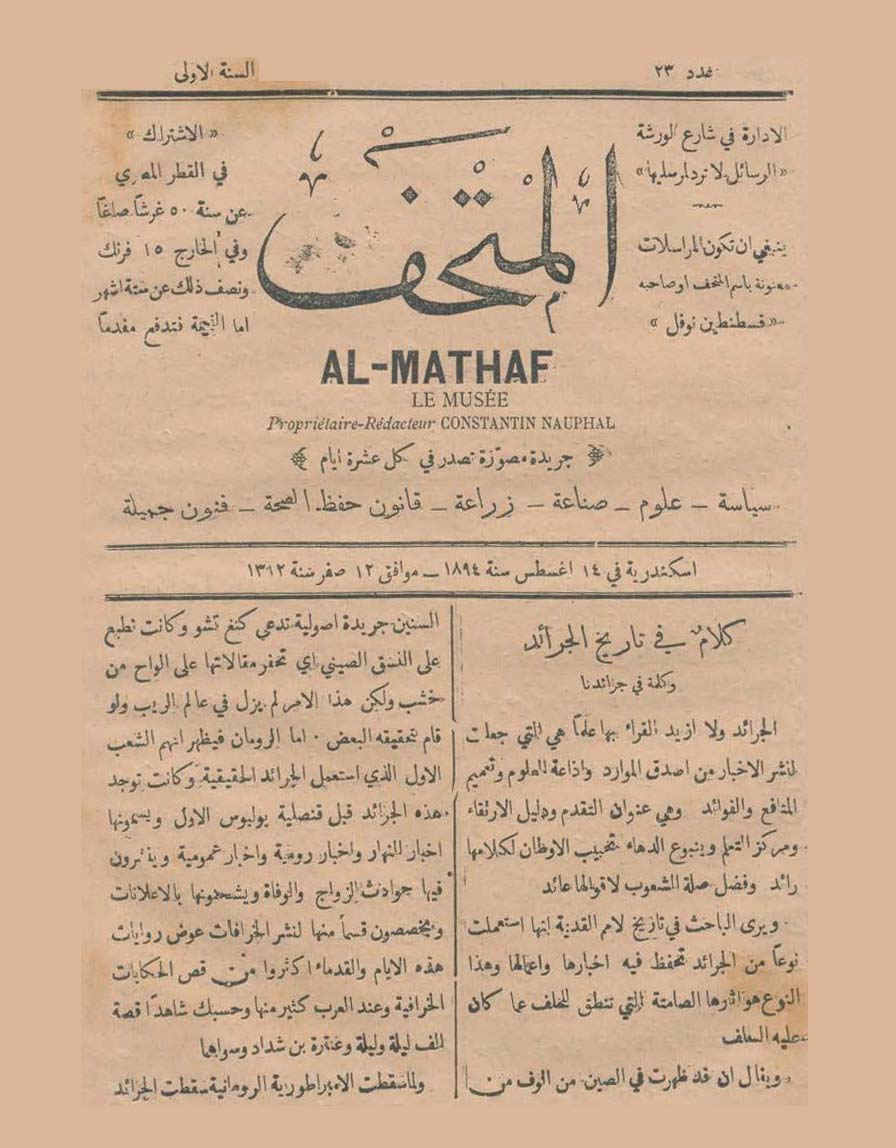 عدد ٢٣
السنة الاولى
الادارة في شارع الورشة
«الرسائل لا ترد لمرسليها»
ينبغي ان تكون المراسلات
معنونة باسم المتحف او صاحبه
«قسطنطين نوفل»
المتحف
«الاشتراك»
في القطر المصري
عن سنة ٥٠ غرشاً صاغاً
وفي الخارج ١٥ فرنك
ونصف ذلك عن ستة اشهر
اما القيمة فتدفع مقدماً
AL-MATHAF
LE MUSÉE
Propriétaire-Rédacteur CONSTANTIN NAUPHAL
جريدة مصوّرة تصدر في كل عشرة ايام
سياسة – علوم – صناعة – زراعة – قانون حفظ الصحة – فنون جميلة
اسكندرية في ١٤ اغسطس سنة ١٨٩٤ – موافق ١٢ صفر سنة ١٣١٢
كلامٌ في تاريخ الجرائد
وكلمة في جرائدنا
الجرائد ولا ازيد القراء بها علماً هي التي جعلت
لنشر الاخبار من اصدق الموارد واذاعة العلوم وتعميم
المنافع والفوائد وهي عنوان التقدم ودليل الارتقاء
ومركز التعلم وينبوع الدهاء تحبيب الاوطان لكلامها
رائد وفضل صلة الشعوب لاقوالها عائد
ويرى الباحث في تاريخ لامم القديمة انها استعملت
نوعاً من الجرائد تحفظ فيه اخبارها واعمالها وهذا
النوع هو اثارها الصامتة التي تنطق للخلف عما كان
عليه السلف
ويقال ان قد ظهرت في الصين من الوف من
السنين جريدة اصولية تدعى كنغ تشو وكانت تطبع
على النسق الصيني اي تحفر مقالاتها على الواح من
خشب ولكن هذا الامر لم يزل في عالم الريب ولو
قام بتحقيقه البعض . اما الرومان فيظهر انهم الشعب
الاول الذي استعمل الجرائد الحقيقية وكانت توجد
هذه الجرائد قبل قنصلية يوليوس الاول ويسمونها
اخبار النهار واخبار رومية واخبار عمومية وينشرون
فيها حوادث الزواج والوفاة ويشحنونها بالاعلانات
ويخصصون قسماً منها لنشر الخرافات عوض روايات
هذه الايام والقدماء اكثروا من قص الحكايات
الخرافية وعند العرب كثير منها وحسبك شاهداً قصة
الف ليلة وليلة وعنترة بن شداد وسواهما
ولما سقطت الامبراطورية الرومانية سقطت الجرائد